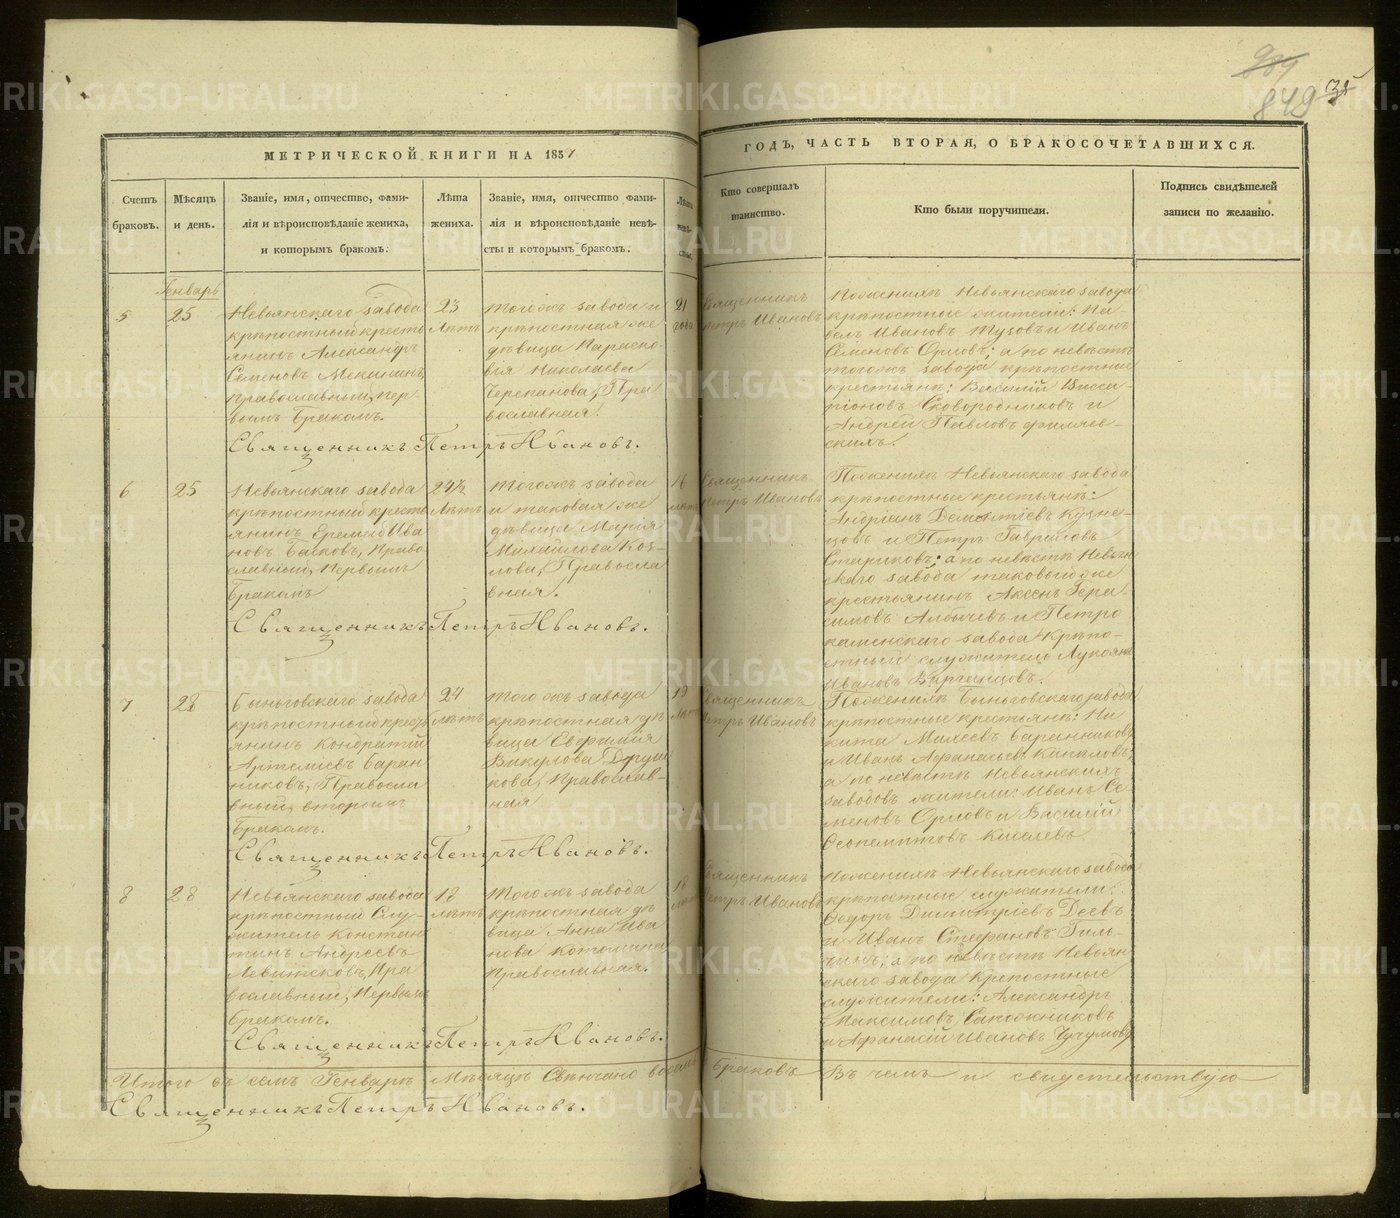 989
849
31
МЕТРИЧЕСКОЙ КНИГИ НА 1851
ГОДЪ, ЧАСТЬ ВТОРАЯ, О БРАКОСОЧЕТАВШИХСЯ.
Счетъ
браковъ.
Мѣсяцъ
и день.
Званіе, имя, отчество, фами-
лія и вѣроисповѣданіе жениха,
и которымъ бракомъ.
Лѣта
жениха.
Званіе, имя, отчество фами-
лія и вѣроисповѣданіе невѣ-
сты и которымъ бракомъ.
Лѣта
невѣ-
сты.
Кто совершалъ
таинство.
Кто были поручители.
Подпись свидѣтелей
записи по желанію.
Генварь
5
25
Невьянскаго завода
крѣпостный кресть
янинъ Александръ
Семеновъ Мекининъ,
Православный, пер
вымъ бракомъ.
23
Лѣтъ
Тогожъ завода и
крѣпостная же
дѣвица Параско-
вія Николаева
Черепанова, Пра
вославная.
21
года
Священникъ
Петръ Ивановъ
По женихѣ Невьянскаго завода
крѣпостные жители: Па-
велъ Ивановъ Тузовъ и Иванъ
Семеновъ Орловъ; а по невѣстѣ
тогожъ завода крѣпостные
крестьяне: Василій Висса-
ріоновъ Сковородниковъ и
Андрей Павловъ Филяев-
скихъ.
Священникъ Петръ Ивановъ.
6
25
Невьянскаго завода
крѣпостный кресть
янинъ Еремей Ива
новъ Басковъ, Право
славный, Первымъ
бракомъ
24½
Лѣтъ
Тогожъ завода
и таковая же
дѣвица Марія
Михайлова Коз-
лова, Православ
ная.
16
лѣтъ
Священникъ
Петръ Ивановъ
По женихѣ Невьянскаго завода
крѣпостные крестьяне:
Андріанъ Дементіевъ Кузне-
цовъ и Петръ Гавриловъ
Стариковъ; а по невѣстѣ Невьян
скаго завода таковый же
крестьянинъ Аксенъ Гера-
симовъ Албычевъ и Петро
каменскаго завода Крѣпо-
стный служитель Лукоянъ
Ивановъ Вырганцовъ.
Священникъ Петръ Ивановъ.
7
28
Быньговскаго завода
крѣпостный кресть
янинъ Кондратій
Артеміевъ Баран
никовъ, Правосла
вный, вторымъ
бракомъ.
24
лѣтъ
Того жъ завода
крѣпостная дѣ
вица Евфимія
Викулова Друш
кова, Православ-
ная
19
Лѣтъ
Священникъ
Петръ Ивановъ
По женихѣ Быньговскаго завода
крѣпостные крестьяне: Ни
кита Михеевъ Баранниковъ
и Иванъ Афанасьевъ Каналовъ;
а по невѣстѣ Невьянскихъ
заводовъ жители: Иванъ Се
меновъ Орловъ и Василій
Феопемптовъ Киселевъ
Священникъ Петръ Ивановъ.
8
28
Невьянскаго завода
крѣпостный Слу-
житель Констан
тинъ Андреевъ
Левитсковъ, Пра
вославный, Первымъ
бракомъ.
18
лѣтъ
Тогожъ завода
крѣпостная дѣ
вица Анна Ива
нова Котюшина
Православная.
18
лѣтъ
Священникъ
Петръ Ивановъ
По женихѣ Невьянскаго завода
крѣпостные служители:
Федоръ Димитріевъ Деевъ
и Иванъ Стефановъ Гиль-
чинъ; а по невѣстѣ Невьян
скаго завода Крѣпостные
служители: Александръ
Максимовъ Сапожниковъ
и Афанасій Ивановъ Чучумовъ
Священникъ Петръ Ивановъ.
Итого въ семъ Генварѣ Мѣсяцѣ Свѣнчано восемь браковъ Въ чемъ и свидетельствую
Священникъ Петръ Ивановъ.
METRIKI.GASO-URAL.RU